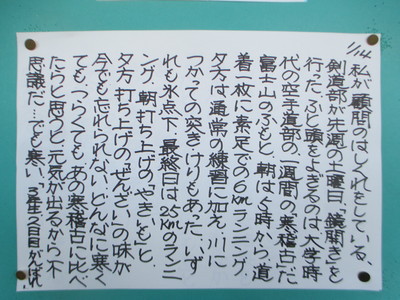 1/14 私が顧問のはしくれをしている、
剣道部が先週の土曜日、鏡開きを
行った。ふと頭をよぎるのは大学時
代の空手道部の一週間の「寒稽古」だ。
富士山のふもと、朝は5時から、道
着一枚に素足での6kmランニング、
夕方は通常の練習に加え、川に
つかっての突き・けりもあった。いず
れも氷点下。最終日は25kmのランニ
ング。朝打ち上げの「やきいも」と
夕方打ち上げの「ぜんざい」の味が
今でも忘れられない。どんなに寒く
ても、つらくても、あの寒稽古に比べ
たらと思うと、元気が出るから不
思議だ…でも寒い。3年生6日目がんばれ